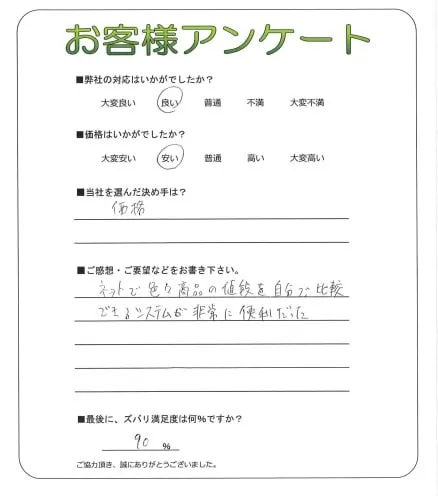 お客様アンケート
■弊社の対応はいかがでしたか？
大変良い 良い 普通 不満 大変不満
■価格はいかがでしたか？
大変安い 安い 普通 高い 大変高い
■当社を選んだ決め手は？
価格
■ご感想・ご要望などをお書き下さい。
ネットで色々商品の値段を自分で比較
できるシステムが非常に便利だった
■最後に、ズバリ満足度は何%ですか？
90 %
ご協力頂き、誠にありがとうございました。